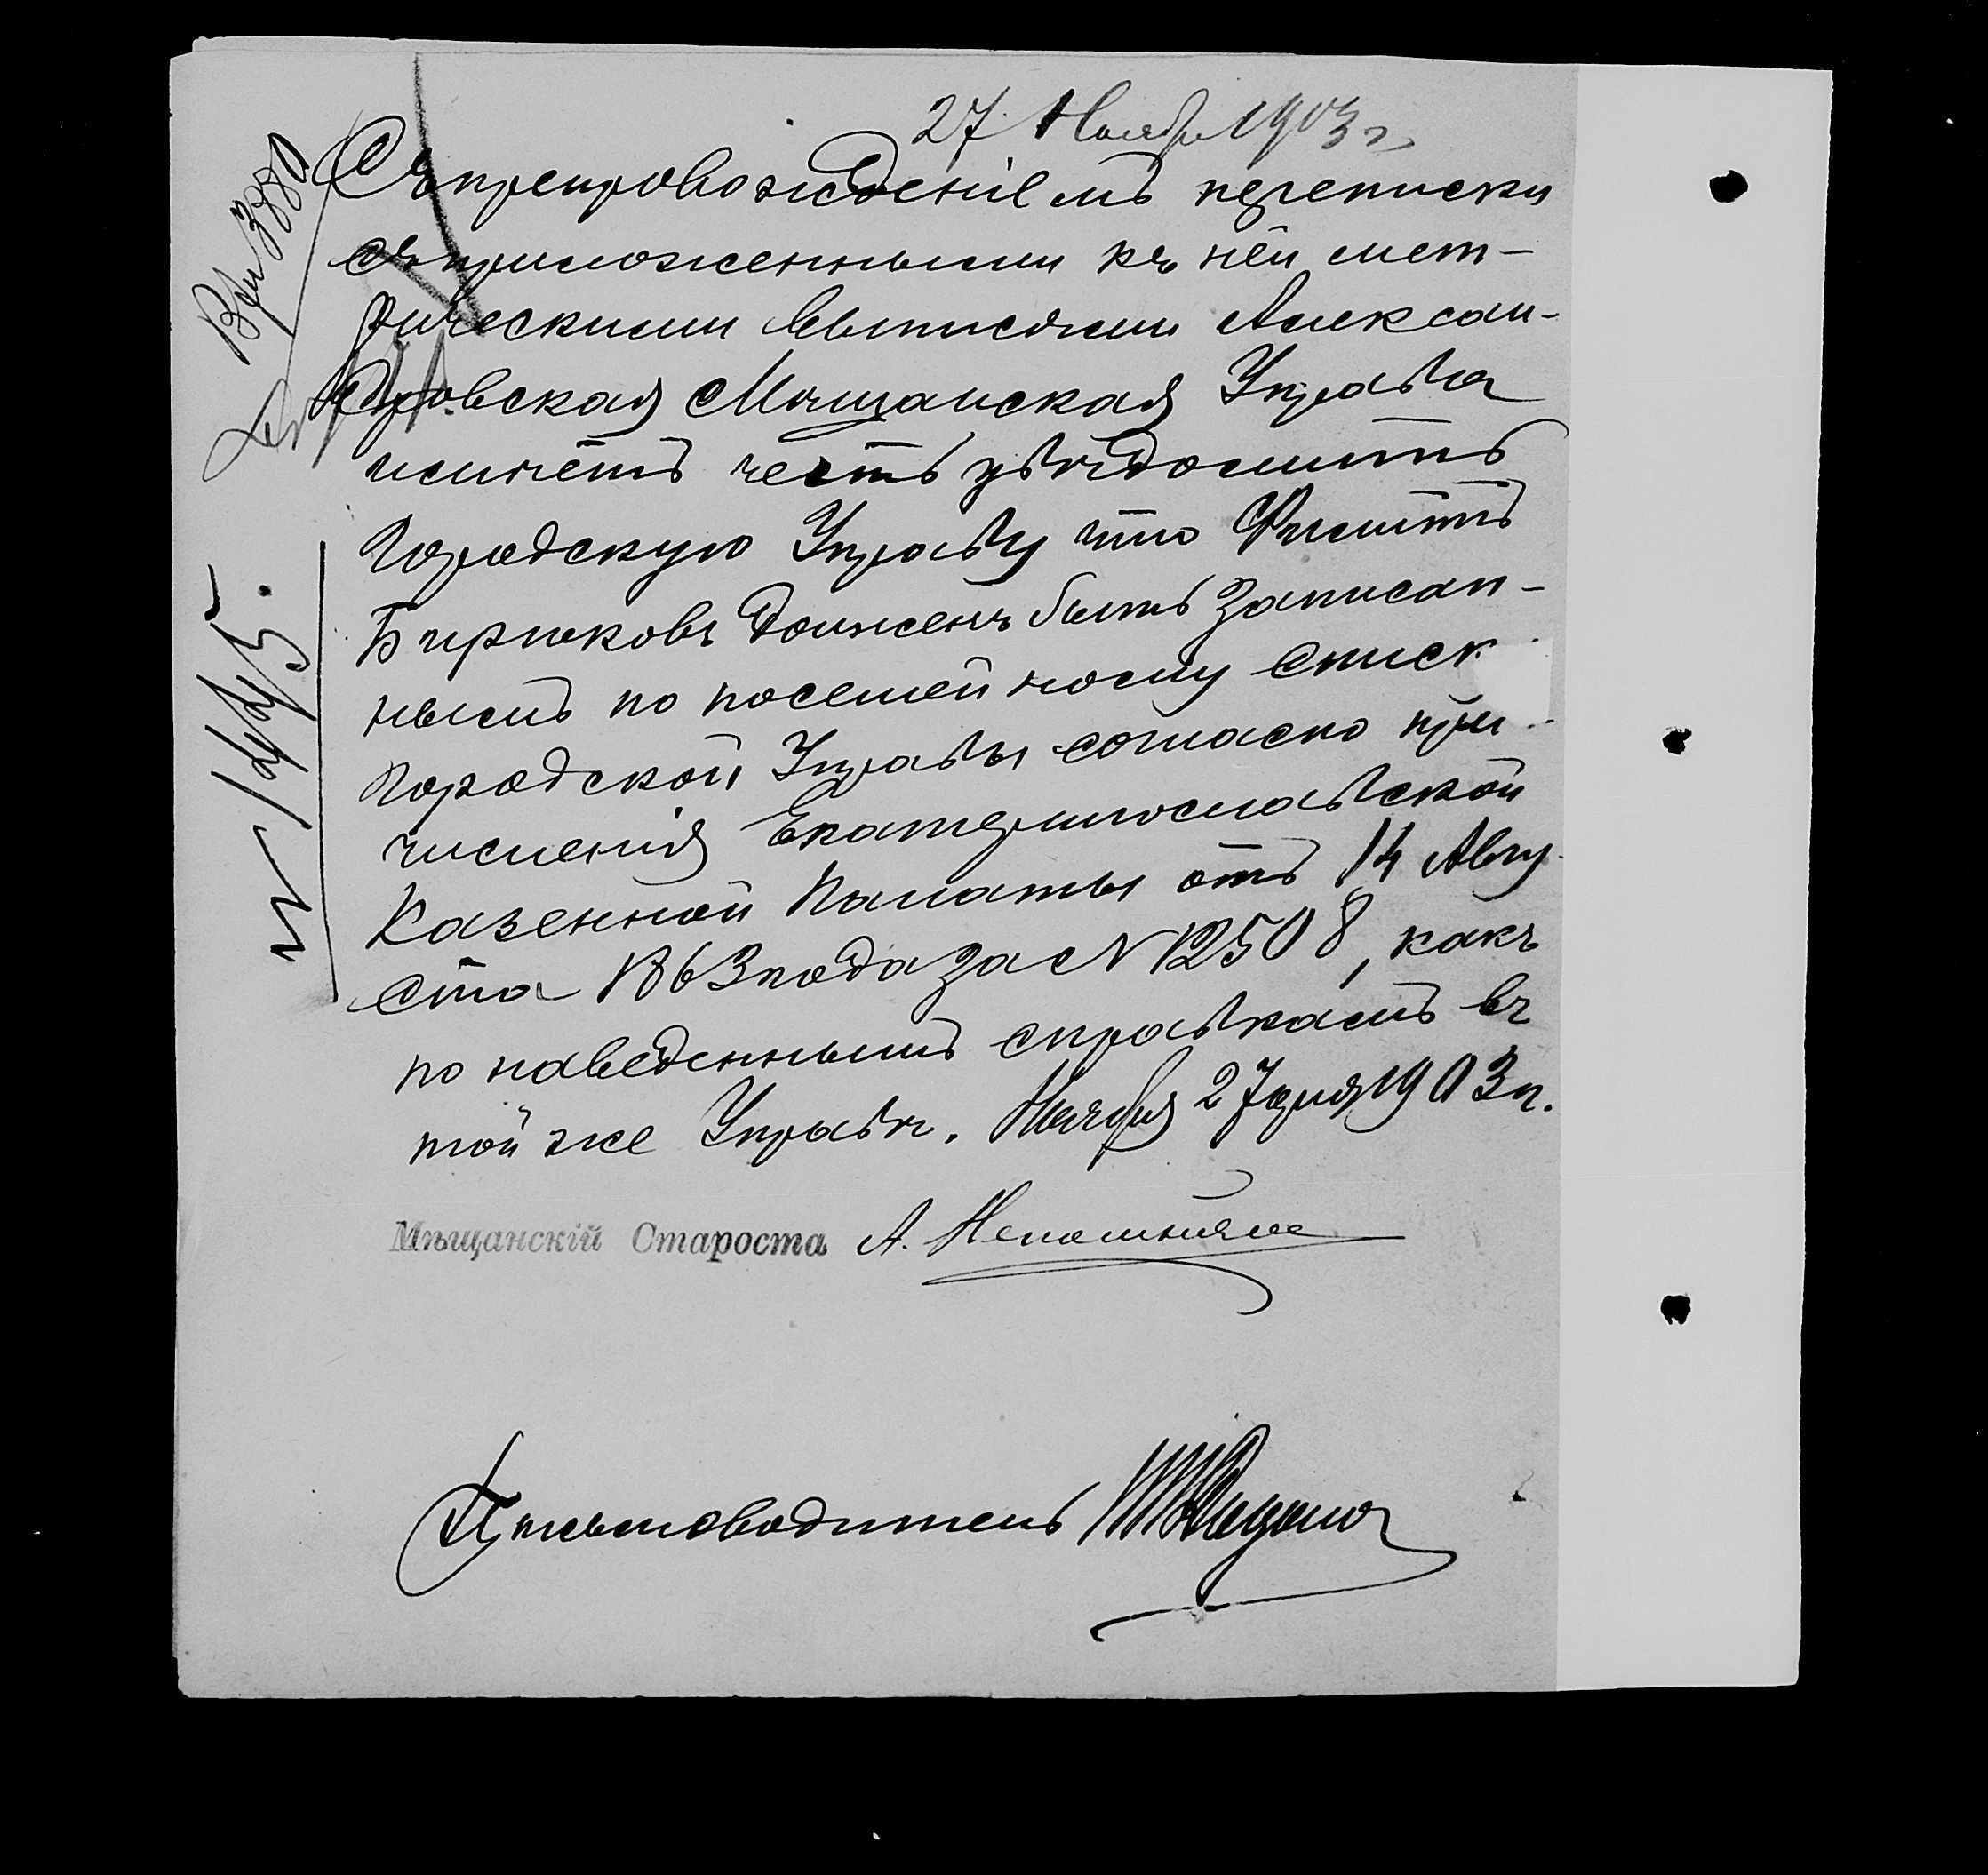 27 Ноября 1903 г.
Вх. 3880
Съ препровожденіемъ переписки
съ приложенными къ ней мет-
рическими выписями Алексан-
дровская Мѣщанская Управа
имѣетъ честь увѣдомить
Городскую Управу что Филиппъ
Бирюковъ долженъ быть записан-
нымъ по посемейному списк
Городской Управы согласно при-
численія Екатеринославской
Казенной Палаты отъ 14 Авгу-
ста 1863 года за № 12508, какъ
по наведеннымъ справкамъ въ
той же Управѣ. Ноября 27 дня 1903 г.
Мѣщанскій Староста А.
Письмоводитель